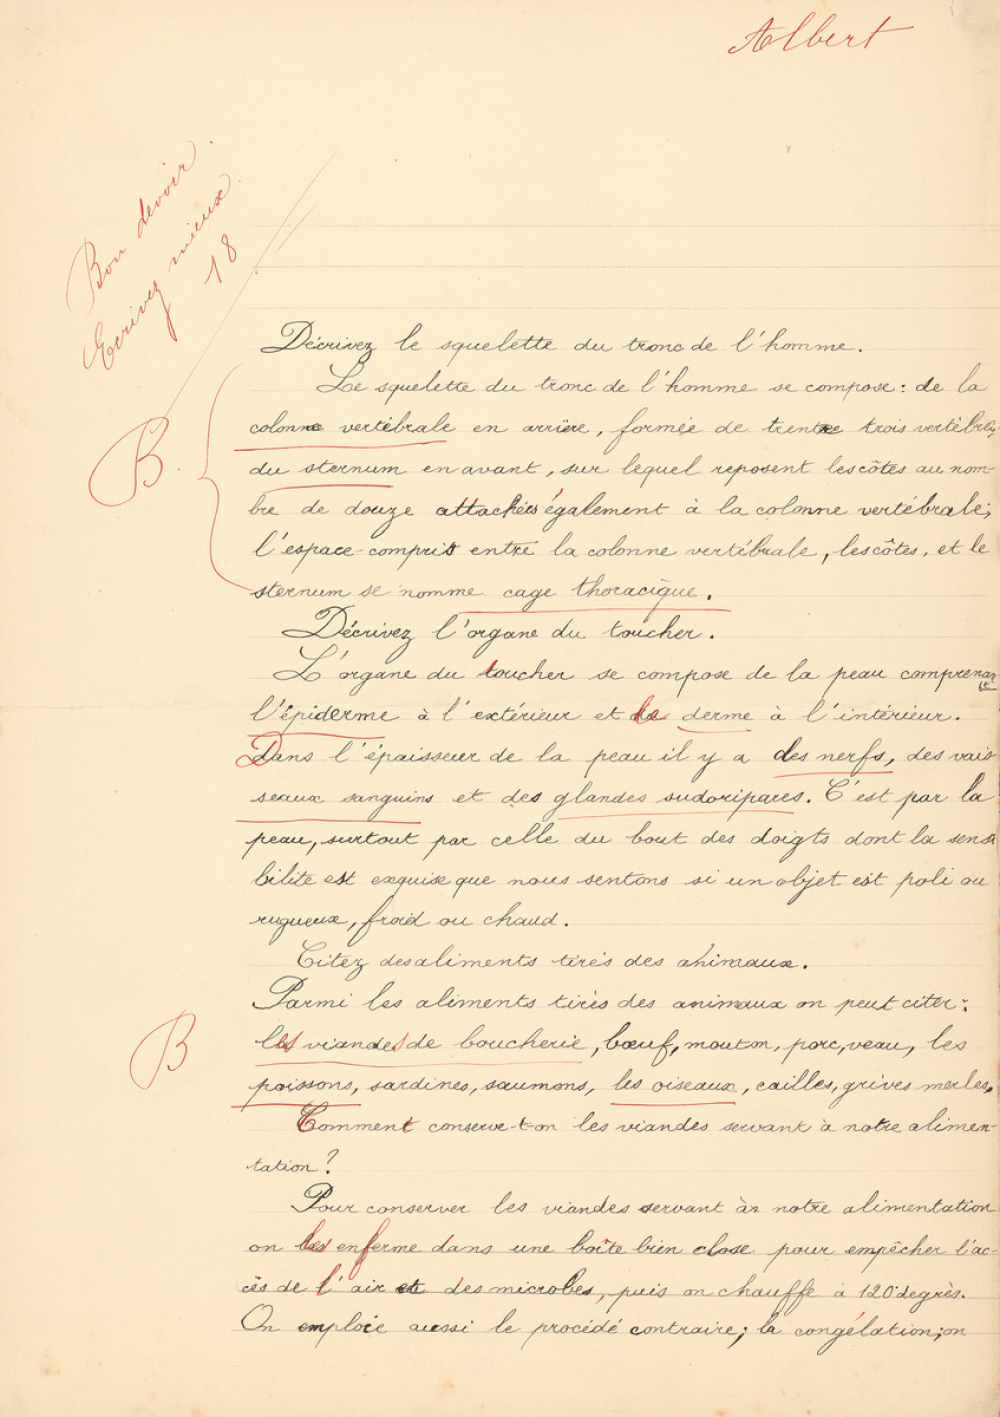 Albert
Bon devoir.
Ecrivez mieux.
18
Décrivez le squelette du tronc de l'homme.
Le squelette du tronc de l'homme se compose: de la
B.
colonne vertébrale en arrière, formée de trente trois vertèbres,
du sternum en avant, sur lequel reposent les côtes au nom-
bre de douze attachées également à la colonne vertébrale;
l'espace compris entre la colonne vertébrale, les côtes, et le
sternum se nomme cage thoracique.
Décrivez l'organe du toucher.
L'organe du toucher se compose de la peau comprenant
l'épiderme à l'extérieur et le derme à l'intérieur.
Dans l'épaisseur de la peau il y a des nerfs, des vais
seaux sanguins et des glandes sudoripares. C'est par la
peau, surtout par celle du bout des doigts dont la sensi
bilité est exquise que nous sentons si un objet est poli ou
rugueux, froid ou chaud.
Citez des aliments tirés des animaux.
Parmi les aliments tirés des animaux on peut citer:
B
les viandes de boucherie, bœuf, mouton, porc, veau, les
poissons, sardines, saumons, les oiseaux, cailles, grives merles.
Comment conserve-t-on les viandes servant à notre alimen-
tation?
Pour conserver les viandes servant à notre alimentation
on les enferme dans une boîte bien close pour empêcher l'ac-
cès de l'air et des microbes, puis on chauffe à 120 degrés.
On emploie aussi le procédé contraire; la congélation; on